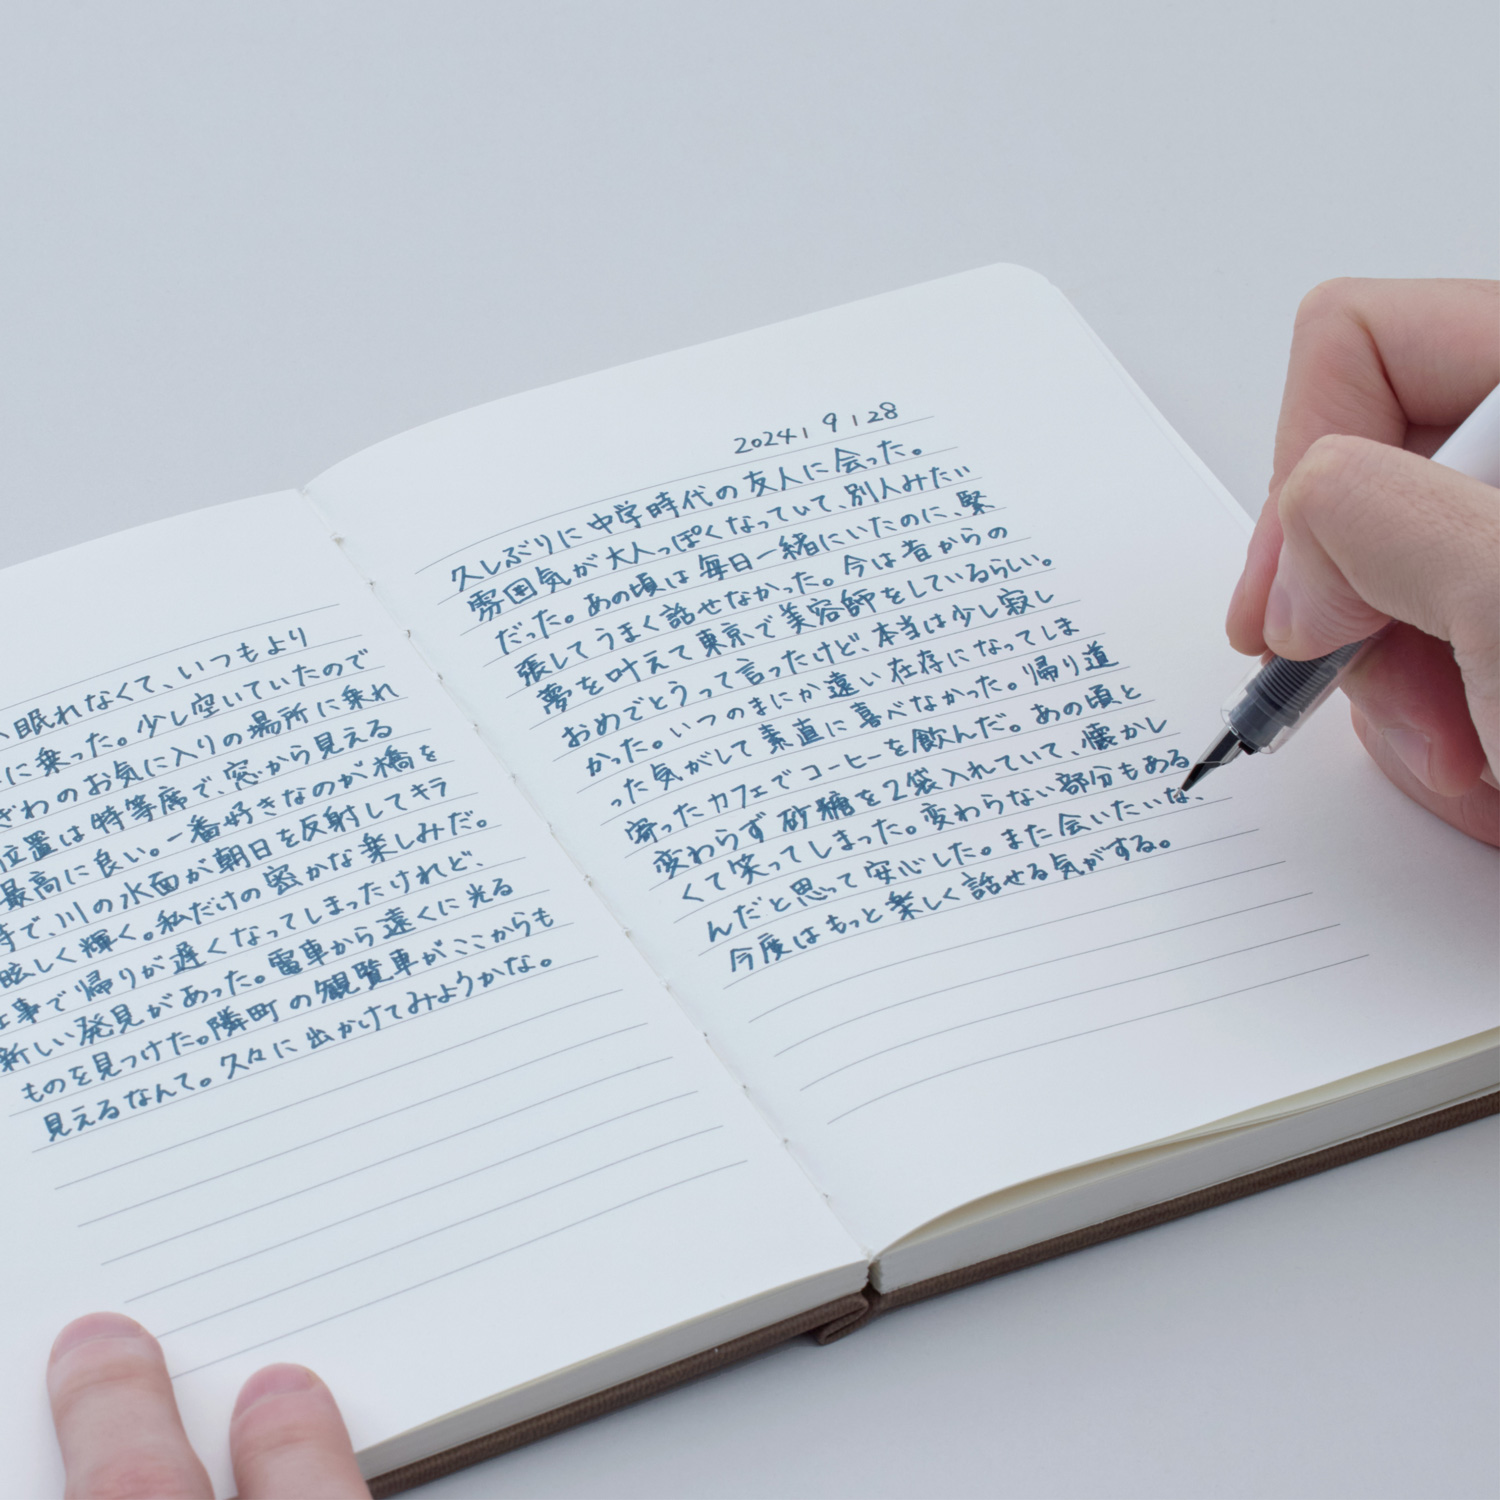 、眠れなくて、いつもより
に乗った。少し空いていたので
ざわのお気に入りの場所に乗れ
位置は特等席で、窓から見える
最高に良い。一番好きなのが橋を
時で、川の水面が朝日を反射してキラ
眩しく輝く。私だけの密かな楽しみだ。
仕事で帰りが遅くなってしまったけれど、
新しい発見があった。電車から遠くに光る
ものを見つけた。隣町の観覧車がここからも
見えるなんて。久々に出かけてみようかな。
2024 | 9 | 28
久しぶりに中学時代の友人に会った。
雰囲気が大人っぽくなっていて、別人みたい
だった。あの頃は毎日一緒にいたのに、緊
張してうまく話せなかった。今は昔からの
夢を叶えて東京で美容師をしているらしい。
おめでとうって言ったけど、本当は少し寂し
かった。いつのまにか遠い存在になってしま
った気がして素直に喜べなかった。帰り道
寄ったカフェでコーヒーを飲んだ。あの頃と
変わらず砂糖を2袋入れていて、懐かし
くて笑ってしまった。変わらない部分もある
んだと思って安心した。また会いたいな、
今度はもっと楽しく話せる気がする。